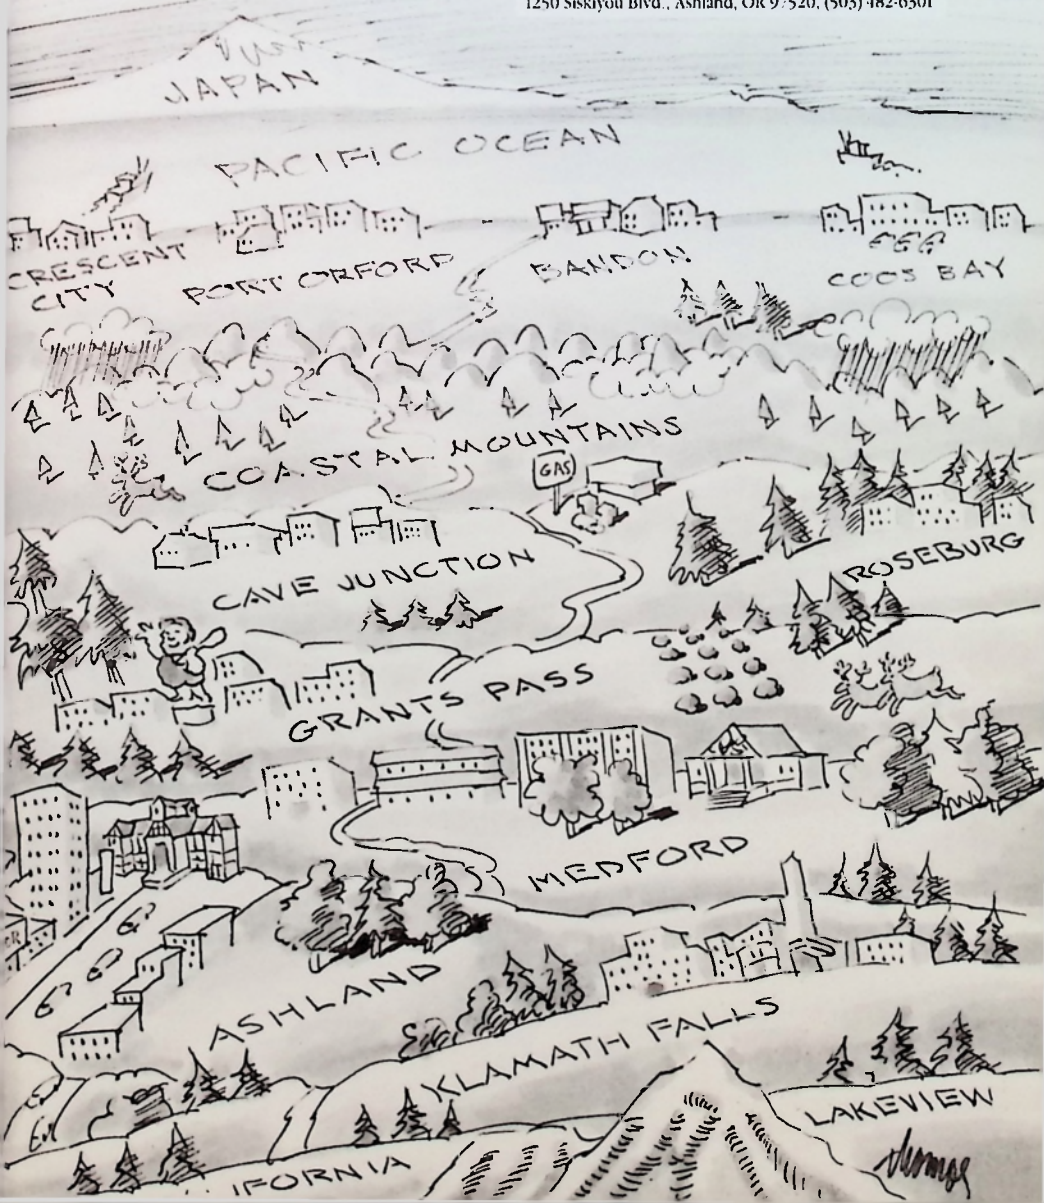 1250 Siskiyou Blvd., Ashland, OR 97520, (503) 482-6301
JAPAN
PACIFIC OCEAN
CRESCENT
CITY
PORT ORFORD
BANDON
COOS BAY
COASTAL MOUNTAINS
GAS
CAVE JUNCTION
ROSEBURG
GRANTS PASS
MEDFORD
ASHLAND
KLAMATH FALLS
LAKEVIEW
IFORNIA